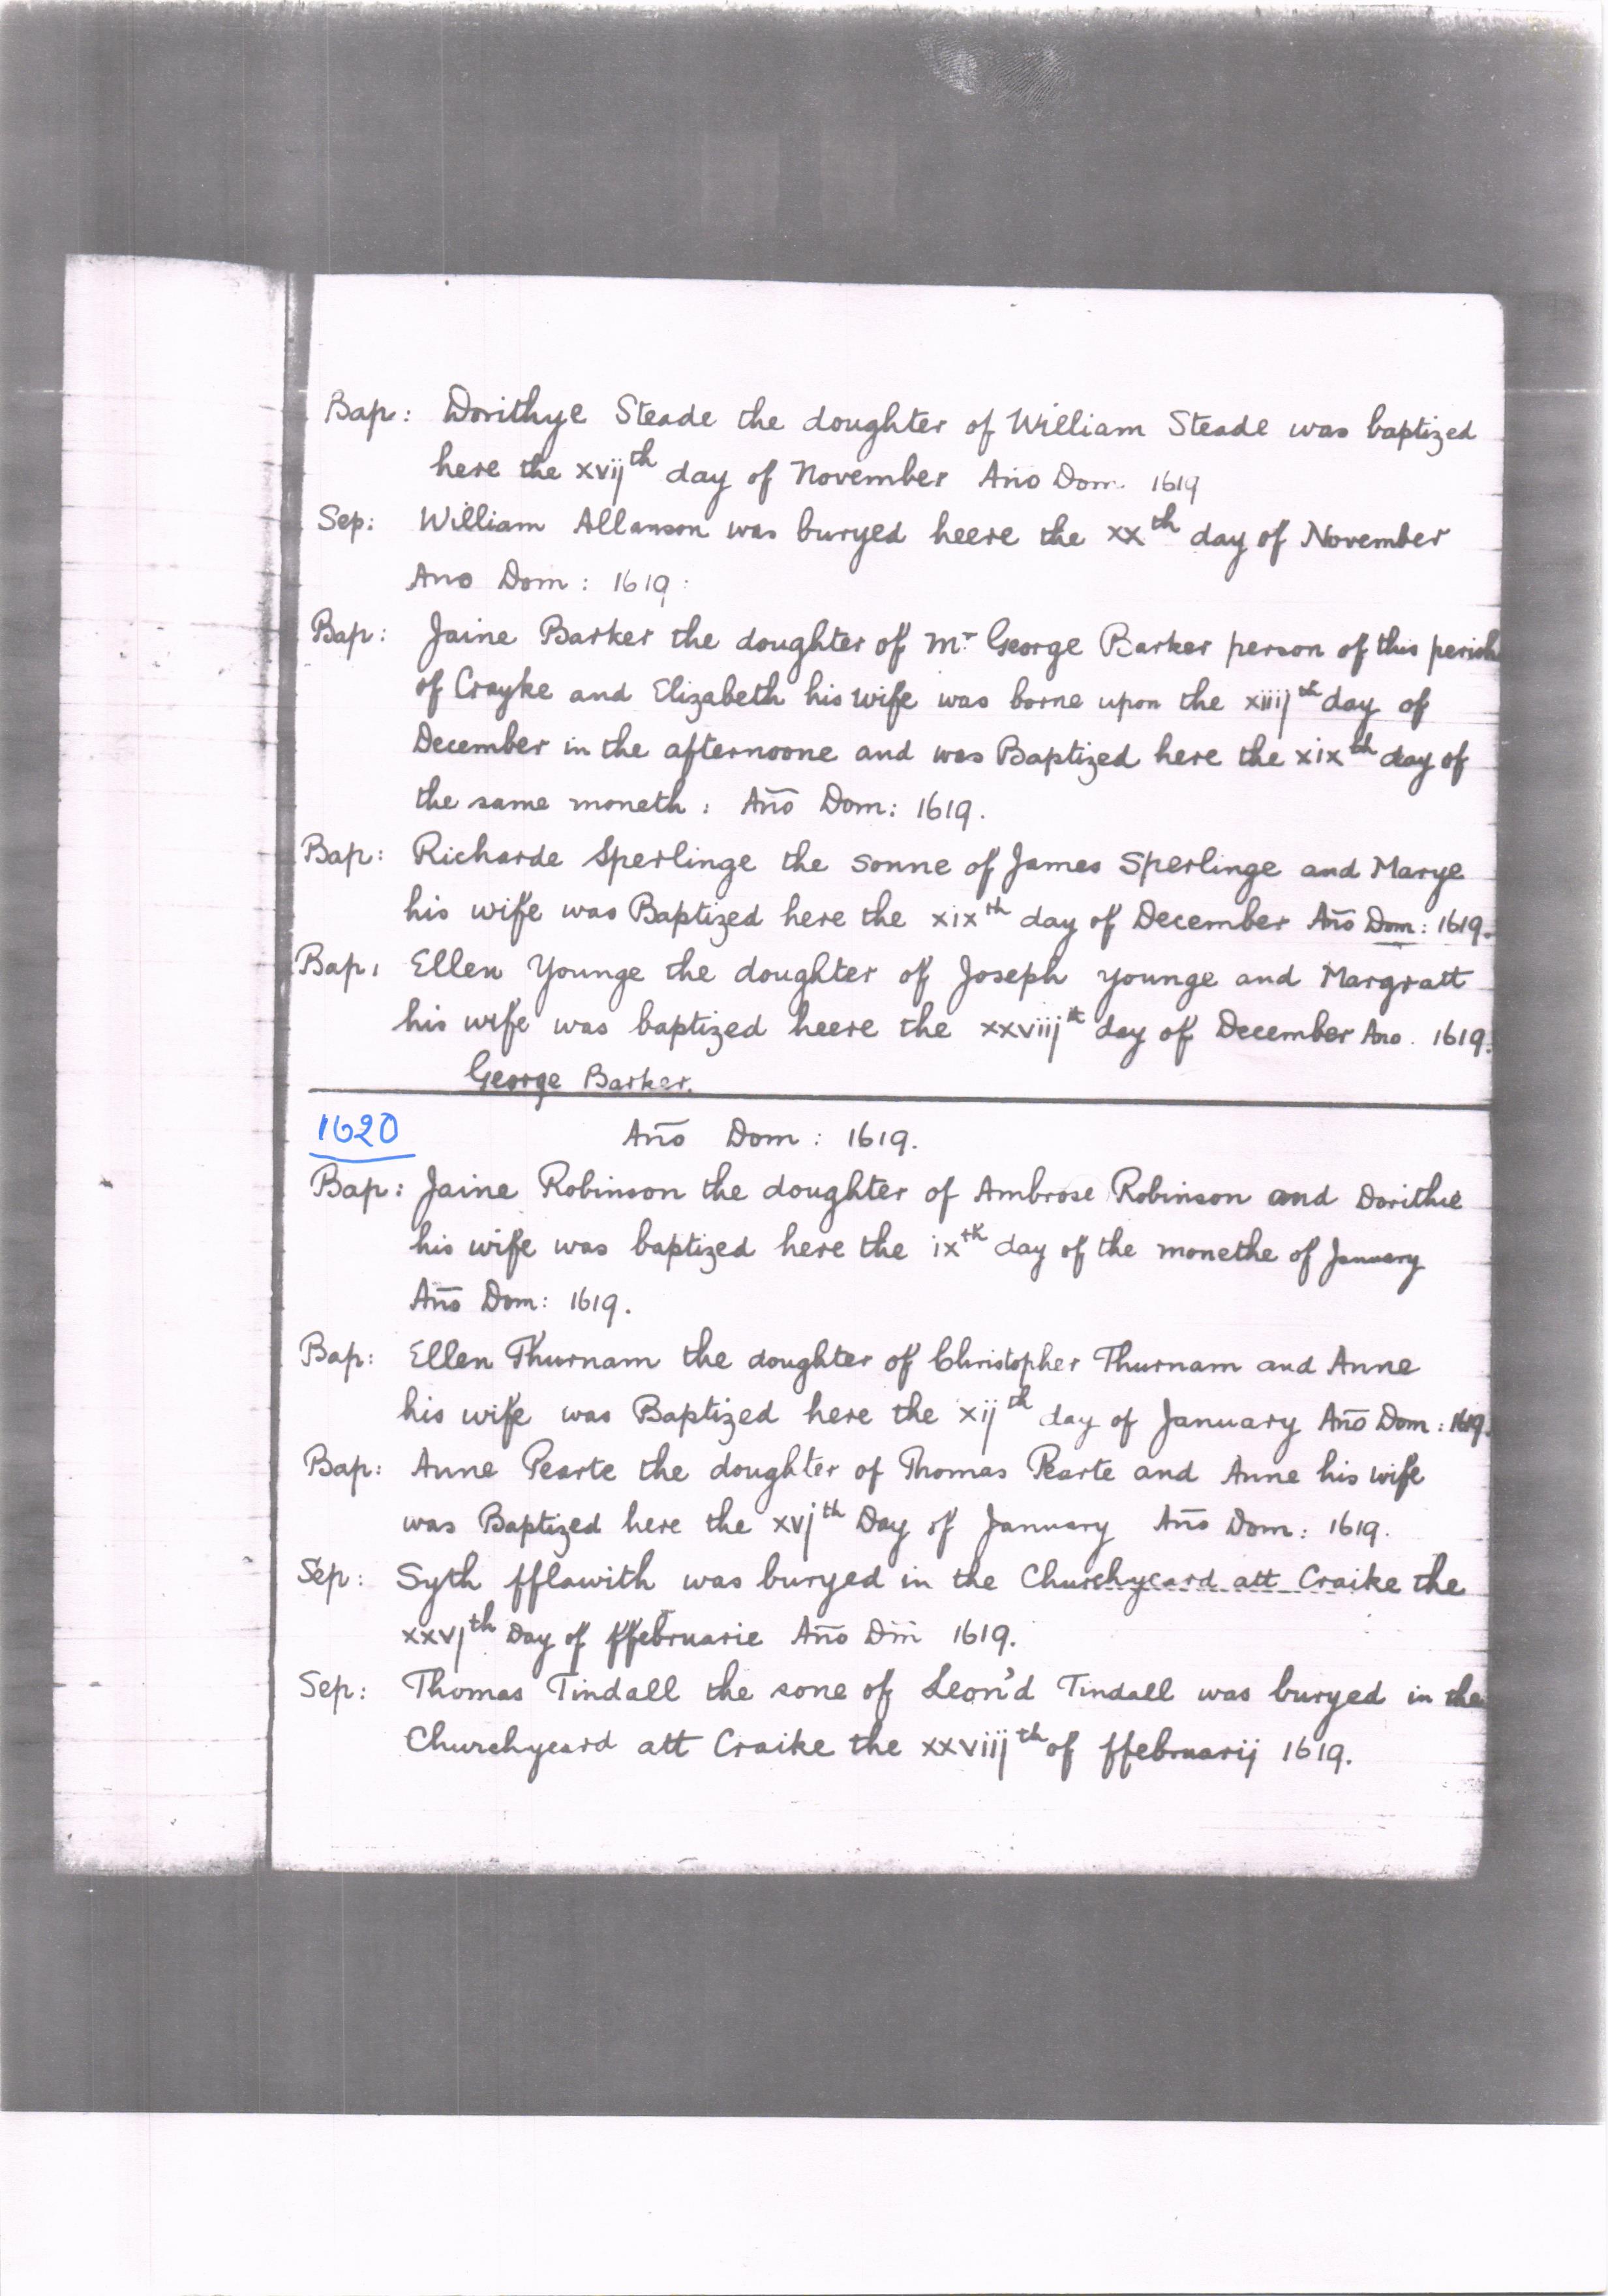 Bap: Dorithye Steade the doughter of William Steade was baptized
here the xvijth day of November Ano Dom. 1619
Sep: William Allanson was buryed heere the xxth day of November
Ano Dom: 1619:
Bap: Jaine Barker the doughter of Mr George Barker person of this perish
of Crayke and Elizabeth his wife was borne upon the xiiijth day of
December in the afternoone and was Baptized here the xixth day of
the same moneth: Año Dom: 1619.
Bap: Richarde Sperlinge the sonne of James Sperlinge and Marye
his wife was Baptized here the xixth day of December Año Dom: 1619.
Bap: Ellen Younge the doughter of Joseph Younge and Margratt
his wife was baptized heere the xxviijth day of December Ano. 1619.
George Barker.
1620
Año Dom: 1619.
Bap: Jaine Robinson the doughter of Ambrose Robinson and Dorithie
his wife was baptized here the ixth day of the monethe of January
Año Dom: 1619.
Bap: Ellen Thurnam the doughter of Christopher Thurnam and Anne
his wife was Baptized here the xijth day of January Año Dom: 1619.
Bap: Anne Pearte the doughter of Thomas Pearte and Anne his wife
was Baptized here the xvjth Day of January Año Dom: 1619.
Sep: Syth fflawith was buryed in the Churchyeard att Craike the
xxvjth Day of ffebruarie Año Dm̄ 1619.
Sep: Thomas Tindall the sone of Leon'd Tindall was buryed in the
Churchyeard att Craike the xxviijth of ffebruarij 1619.